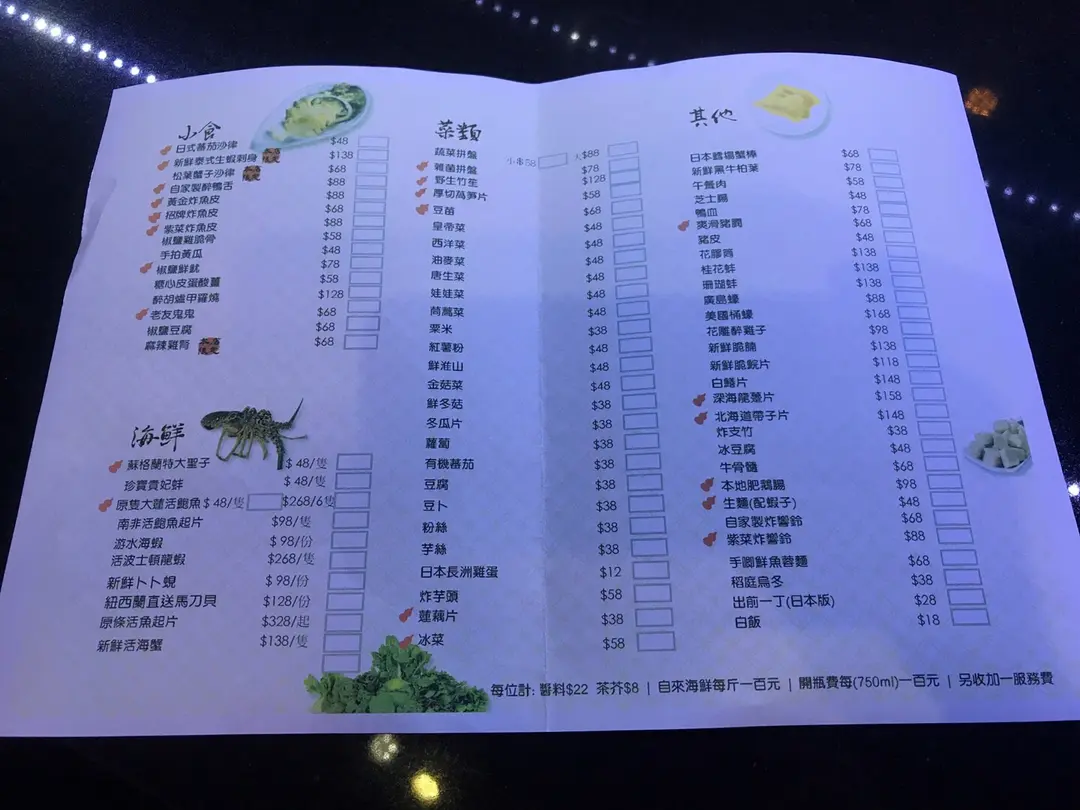 小食
日式蕃茄沙律 $48
新鮮泰式生蝦刺身 $138
松葉蟹子沙律 $68
自家製醉鴨舌 $88
黃金炸魚皮 $88
招牌炸魚皮 $68
紫菜炸魚皮 $88
椒鹽雞脆骨 $58
手拍黃瓜 $48
椒鹽鮮魷 $78
糖心皮蛋酸薑 $58
醉胡蘆甲羅燒 $128
老友鬼鬼 $68
椒鹽豆腐 $68
麻辣雞腎 $68
海鮮
蘇格蘭特大聖子 $48/隻
珍寶貴妃蚌 $48/隻
原隻大蓮活鮑魚 $48/隻 $268/6隻
南非活鮑魚起片 $98/隻
游水海蝦 $98/份
活波士頓龍蝦 $268/隻
新鮮卜卜蜆 $98/份
紐西蘭直送馬刀貝 $128/份
原條活魚起片 $328/起
新鮮活海蟹 $138/隻
菜類
蔬菜拼盤 大$88
雜菌拼盤 $78
野生竹笙 $128
厚切萵筍片 $58
豆苗 $68
皇帝菜 $48
西洋菜 $48
油麥菜 $48
唐生菜 $48
娃娃菜 $48
茼蒿菜 $48
粟米 $38
紅薯粉 $48
鮮淮山 $48
金菇菜 $48
鮮冬菇 $38
冬瓜片 $38
蘿蔔 $38
有機蕃茄 $38
豆腐 $38
豆卜 $38
粉絲 $38
芋絲 $38
日本長洲雞蛋 $12
炸芋頭 $58
蓮藕片 $38
冰菜 $58
其他
日本鱈場蟹棒 $68
新鮮黑牛柏葉 $78
午餐肉 $58
芝士腸 $48
鴨血 $78
爽滑豬膶 $68
豬皮 $48
花膠筒 $138
桂花蚌 $138
珊瑚蚌 $138
廣島蠔 $88
美國桶蠔 $168
花雕醉雞子 $98
新鮮脆腩 $138
新鮮脆鯇片 $118
白鱔片 $148
深海龍躉片 $158
北海道帶子片 $148
炸支竹 $38
冰豆腐 $48
牛骨髓 $68
本地肥鵝腸 $98
生麵(配蝦子) $48
自家製炸響鈴 $68
紫菜炸響鈴 $88
手唧鮮魚蓉麵 $68
稻庭烏冬 $38
出前一丁(日本版) $28
白飯 $18
每位計: 醬料$22 茶芥$8 | 自來海鮮每斤一百元 | 開瓶費每(750ml)一百元 | 另收加一服務費